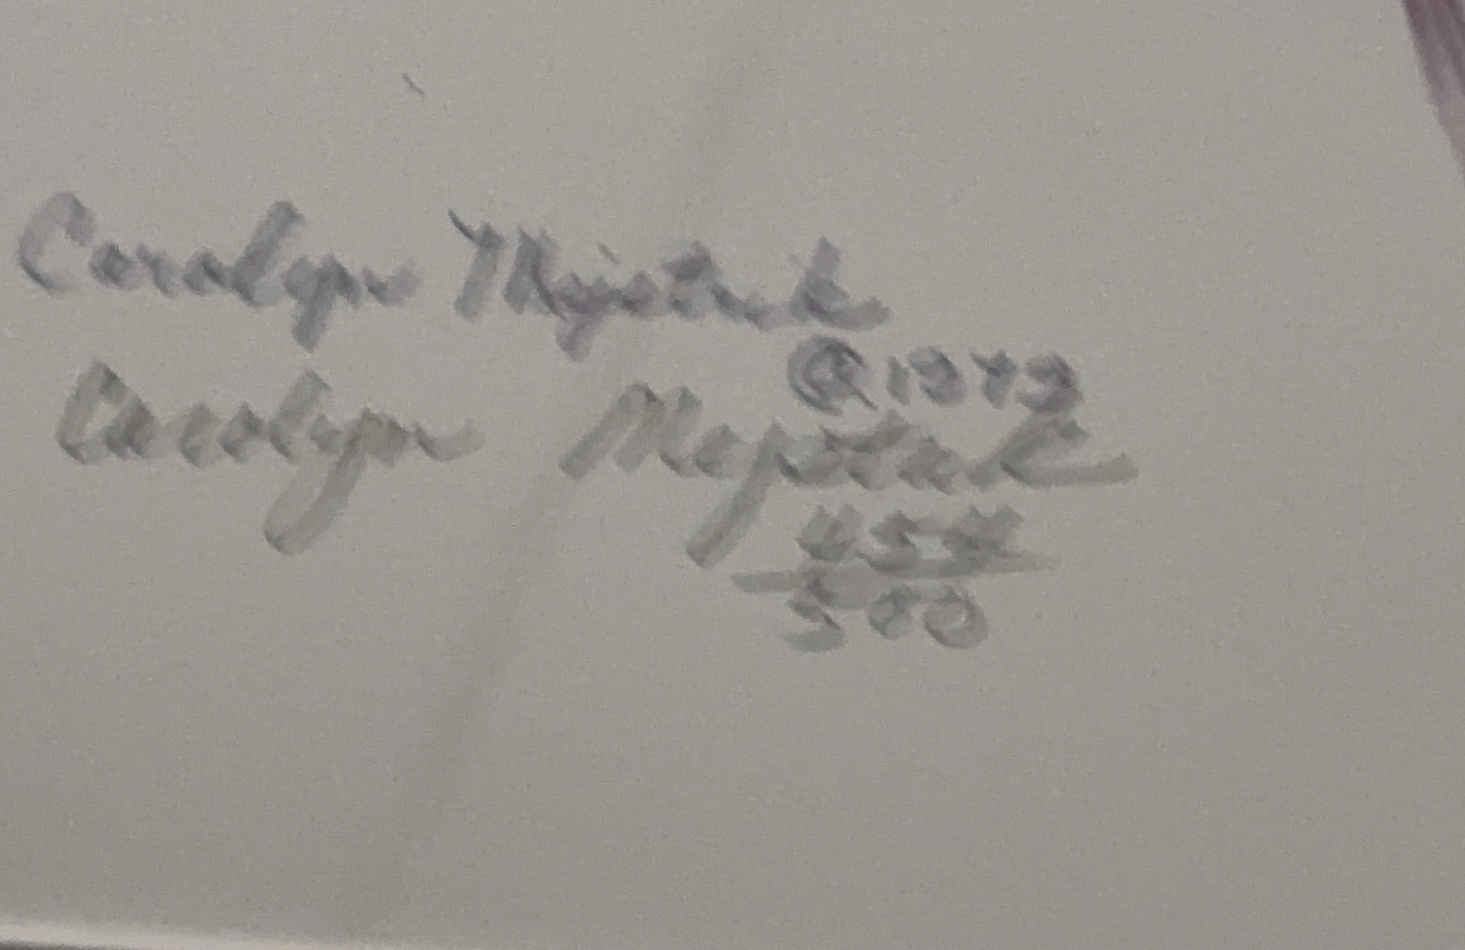 Carolyn Majstrak
© 1979
Carolyn Majstrak
457
500